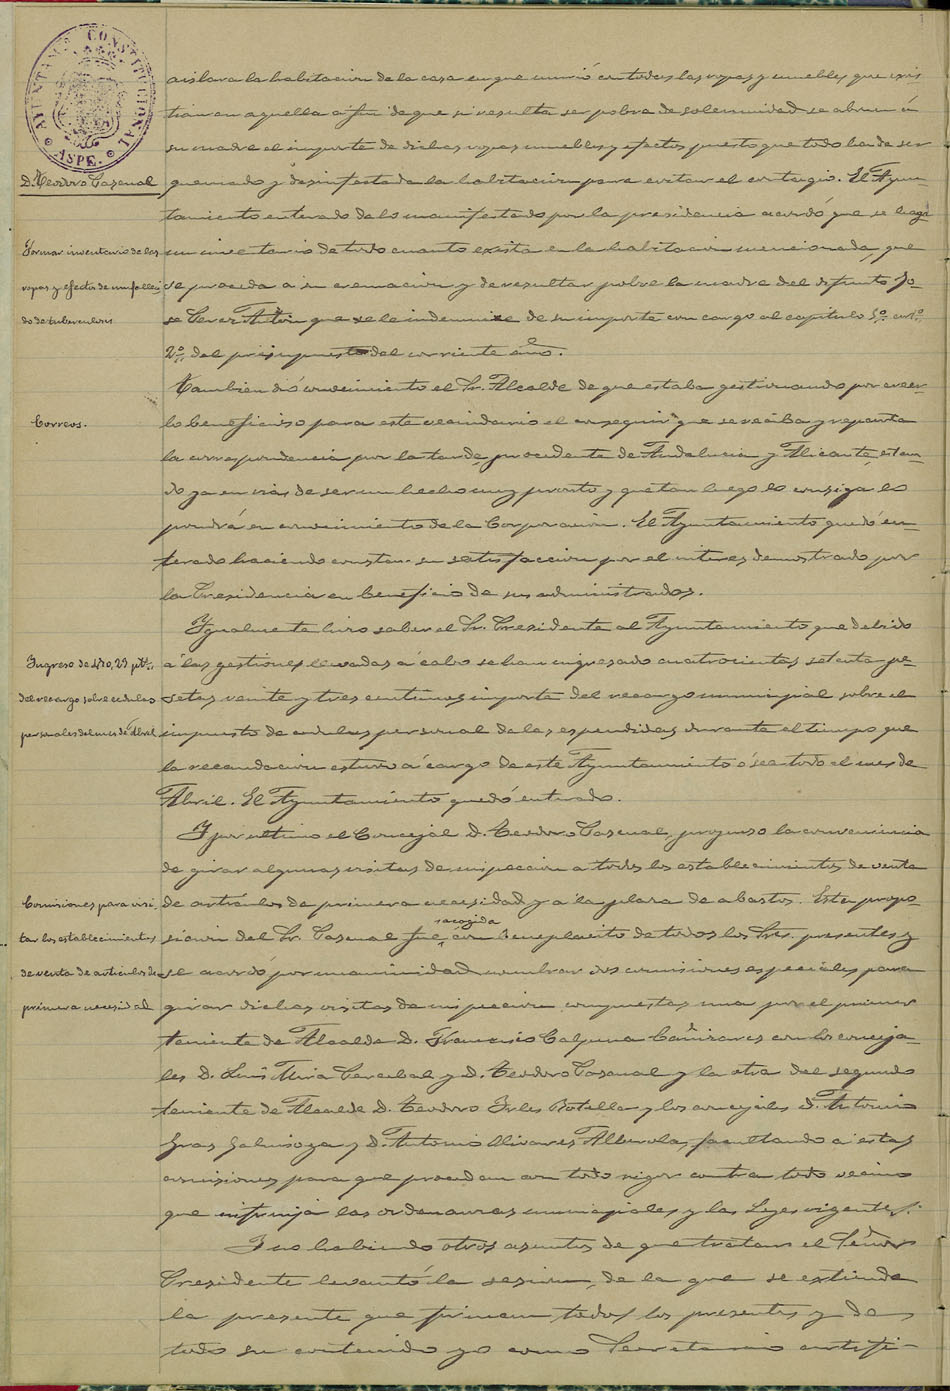 AYUNTAMTO CONSTITUCIONAL
ASPE.
D. Teodoro Pascual
Formar inventario de las
ropas y efectos de un falleci
do de tuberculosis
Correos.
Ingreso de 470,23 ptts.
del recargo sobre cedulas
personales del mes de Abril
Comisiones para visi
tar los establecimientos
de venta de articulos de
primera necesidad
aislara la habitacion de la casa en que murió con todas las ropas y muebles que exis
tian en aquella á fin de que si resulta ser pobre de solemnidad se abone á
su madre el importe de dichas ropas muebles y efectos puesto que todo ha de ser
quemado y desinfectada la habitacion para evitar el contagio. El Ayun-
tamiento enterado de lo manifestado por la presidencia acordó que se haga
un inventario de todo cuanto exista en la habitacion mencionada, que
se proceda á su cremacion y de resultar pobre la madre del difunto Jo-
se Perez Anton que se le indemnize de su importe con cargo al capitulo 5º artº
2º del presupuesto del corriente año.
Tambien dió conocimiento el Sr. Alcalde de que estaba gestionando por creer-
lo beneficioso para este vecindario el conseguir que se reciba y reparta
la correspondencia por la tarde, procedente de Andalucia y Alicante, estan-
do ya en vias de ser un hecho muy pronto y que tan luego lo consiga lo
pondrá en conocimiento de la Corporacion. El Ayuntamiento quedó en-
terado haciendo constar su satisfaccion por el interes demostrado por
la Presidencia en beneficio de sus administrados.
Igualmente hizo saber el Sr. Presidente al Ayuntamiento que debido
á las gestiones llevadas á cabo se han ingresado cuatrocientas setenta pe-
setas veinte y tres centimos importe del recargo municipal sobre el
impuesto de cedulas personal de las espendidas durante el tiempo que
la recaudacion estuvo á cargo de este Ayuntamiento ó sea todo el mes de
Abril. El Ayuntamiento quedó enterado.
Y por ultimo el Concejal D. Teodoro Pascual, propuso la conveniencia
de girar algunas visitas de inspeccion a todos los establecimientos de venta
de articulos de primera necesidad y a la plaza de abastos. Esta propo
sicion del Sr. Pascual fue acogida con beneplacito de todos los Sres. presentes y
se acordó por unanimidad nombrar dos comisiones especiales para
girar dichas visitas de inspeccion compuestas una por el primer
teniente de Alcalde D. Francisco Calpena Cañizares con los conceja-
les D. Luis Mira Cerebal y D. Teodoro Pascual y la otra del segundo
teniente de Alcalde D. Teodoro Irles Botella y los concejales D. Antonio
Gras Galinsoga y D. Antonio Olivares Alberola, facultando a estas
comisiones para que procedan con todo rigor contra todo vecino
que infrinja las ordenanzas municipales y las Leyes vigentes.
Y no habiendo otros asuntos de que tratar el Señor
Presidente levantó la sesion, de la que se extiende
la presente que firman todos los presentes y de
todo su contenido yo como Secretario certifi-